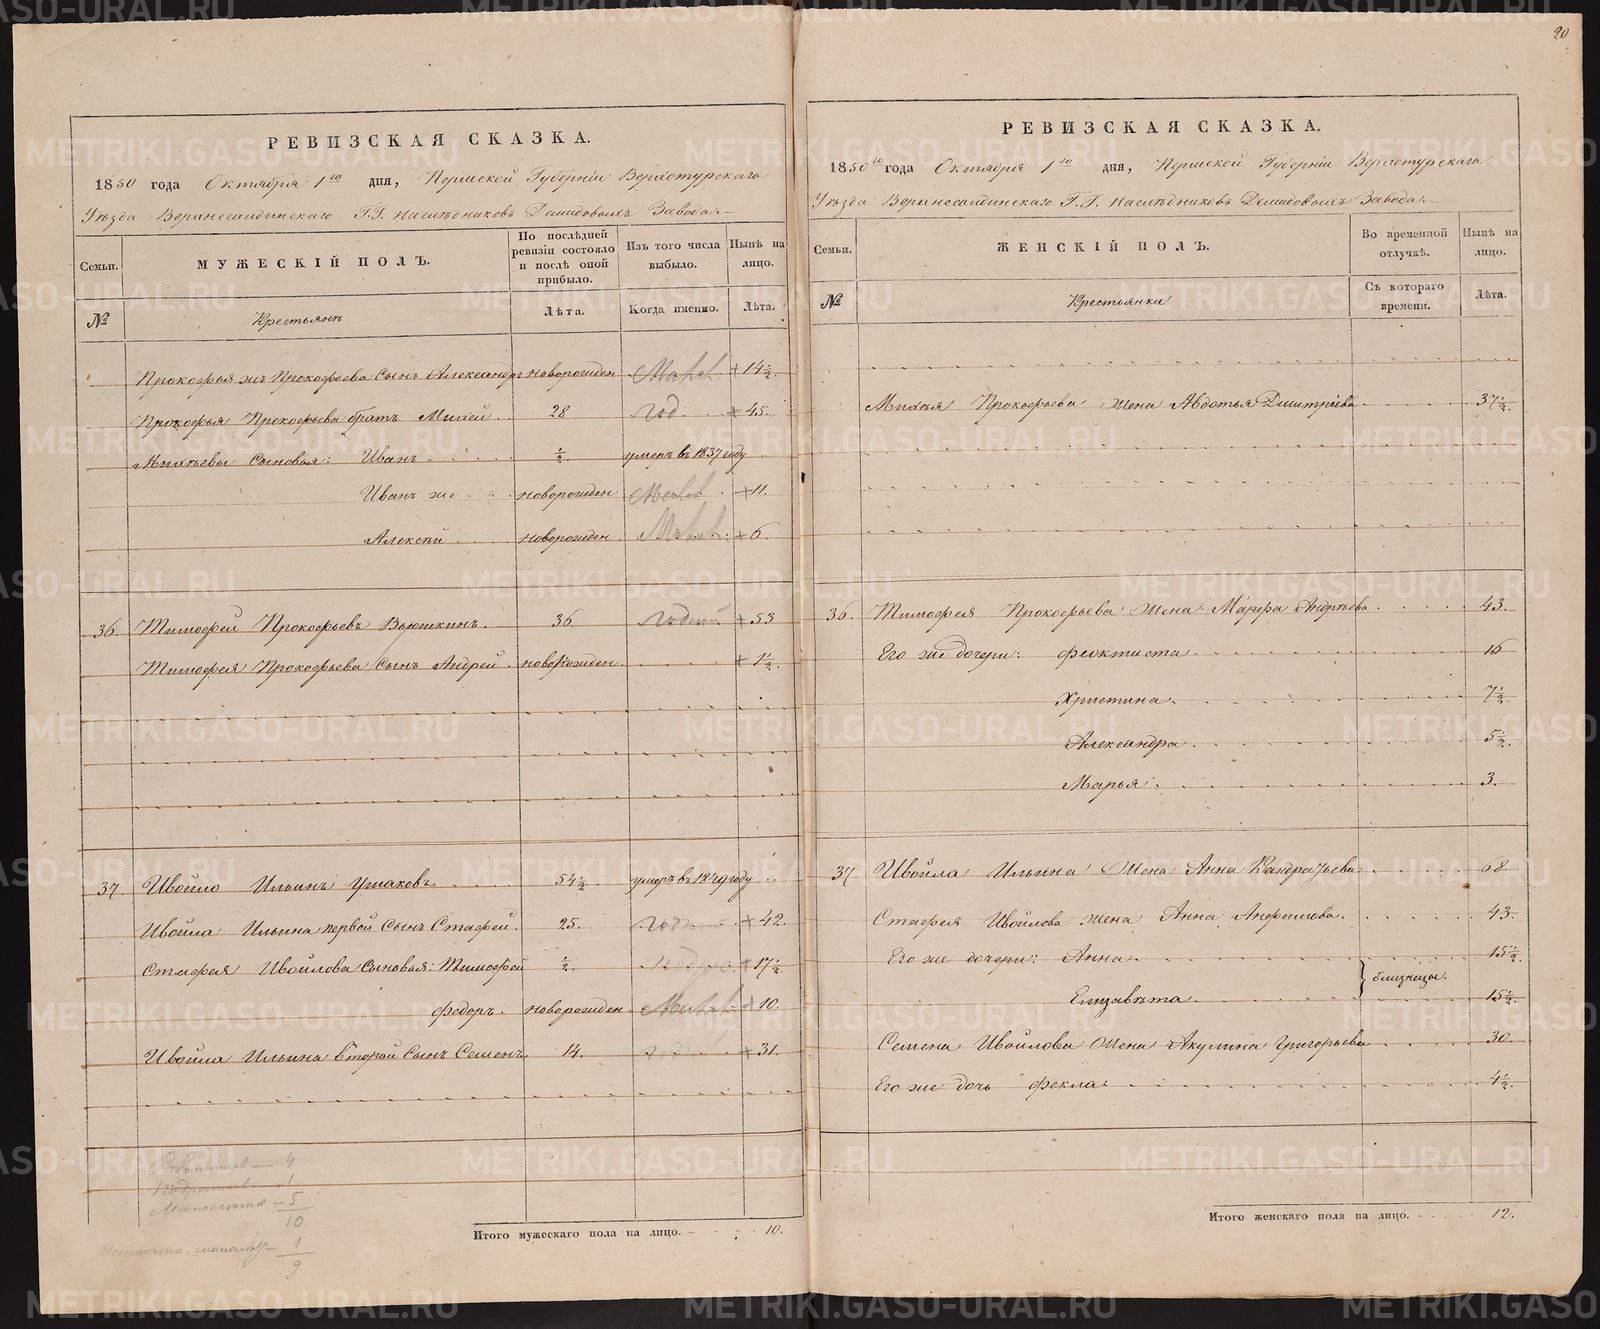 20
РЕВИЗСКАЯ СКАЗКА.
1850 года Октября 1го дня, Пермской Губерніи Верхотурскаго
Уѣзда Верхнесалдинскаго Г.Г. наслѣдниковъ Демидовыхъ Завода.
Семьи.
МУЖЕСКІЙ ПОЛЪ.
По послѣдней ревизіи состояло и послѣ оной прибыло.
Изъ того числа выбыло.
Нынѣ на лицо.
№
Крестьянъ
Лѣта.
Когда именно.
Лѣта.
Прокофья жъ Прокофьева сынъ Александръ новорожден + 14½.
Прокофья Прокофьева братъ Михей 28 год + 45.
Михѣевы сыновья: Иванъ ½ умеръ въ 1837 году
Иванъ же новорожден + 11.
Алексѣй новорожден + 6
36 Тимофей Прокофьевъ Вьюшкинъ. 36 годной + 53
Тимофея Прокофьева сынъ Андрей новорожден + 1½.
37 Ивойло Ильинъ Ушаковъ 54½ умеръ въ 1849 году
Ивойла Ильина первой сынъ Стафей. 25. годной + 42.
Стафея Ивойлова сыновья: Тимофей ½ + 17½.
Федоръ. новорожден + 10.
Ивойла Ильина второй сынъ Семенъ 14. + 31.
4
5
10
1
9
Итого мужескаго пола на лицо. 10.
РЕВИЗСКАЯ СКАЗКА.
1850го года Октября 1го дня, Пермской Губерніи Верхотурскаго
Уѣзда Верхнесалдинскаго Г.Г. наслѣдниковъ Демидовыхъ Завода.
Семьи.
ЖЕНСКІЙ ПОЛЪ.
Во временной отлучкѣ.
Нынѣ на лицо.
№
Крестьянки
Съ котораго времени.
Лѣта.
Михѣя Прокофьева жена Авдотья Дмитріева 37½.
36. Тимофея Прокофьева жена Марфа Андрѣева 43.
Его же дочери: Феоктиста 16
Христина 7½
Александра 5½.
Марья 3.
37 Ивойла Ильина жена Анна Кандратьева 68.
Стафея Ивойлова жена Анна Анфилова. 43.
Его же дочери: Анна 15½
близнецы.
Елизавѣта 15½.
Семена Ивойлова жена Акулина Григорьева 30.
Его же дочь Фекла 4½.
Итого женскаго пола на лицо. 12.
METRIKI.GASO-URAL.RU